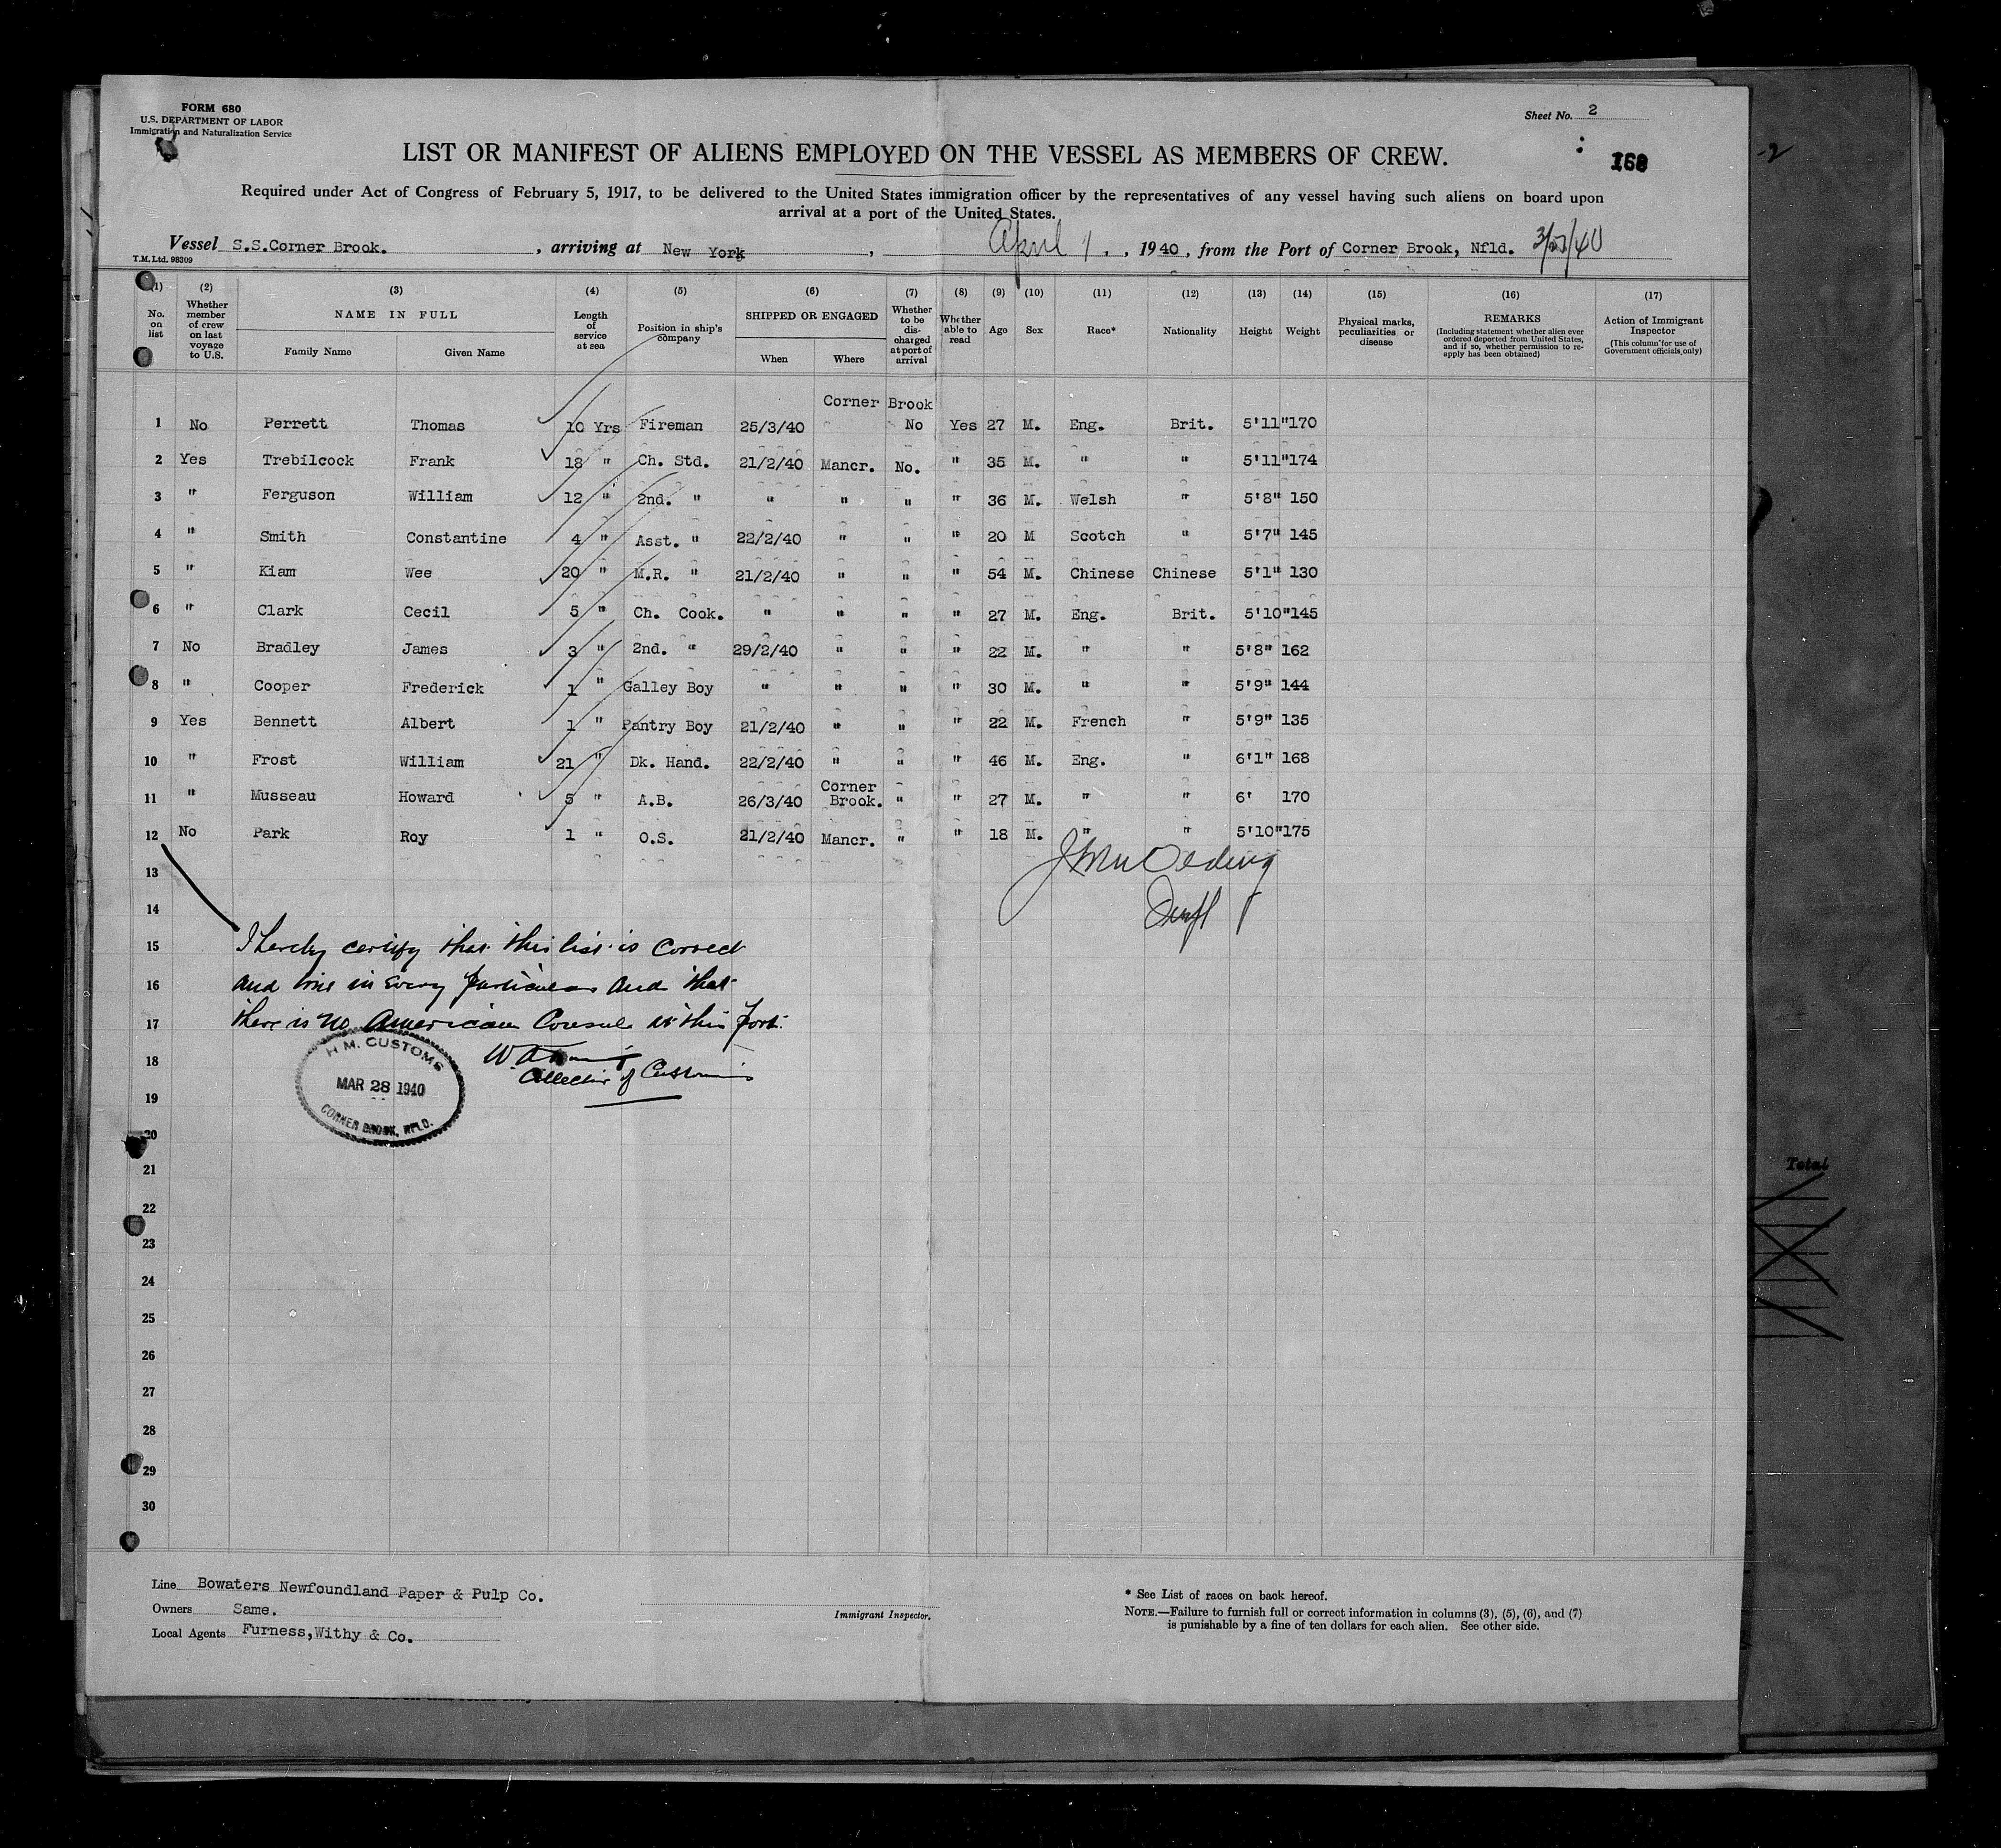 FORM 680
U.S. DEPARTMENT OF LABOR
Immigration and Naturalization Service
Sheet No. 2
LIST OR MANIFEST OF ALIENS EMPLOYED ON THE VESSEL AS MEMBERS OF CREW.
168
Required under Act of Congress of February 5, 1917, to be delivered to the United States immigration officer by the representatives of any vessel having such aliens on board upon
arrival at a port of the United States.
Vessel S.S.Corner Brook. , arriving at New York , April 1 , 1940, from the Port of Corner Brook, Nfld.
T.M. Ltd. 98309
(1) No. on list (2) Whether member of crew on last voyage to U.S. (3) NAME IN FULL Family Name Given Name (4) Length of service at sea (5) Position in ship's company (6) SHIPPED OR ENGAGED When Where (7) Whether to be discharged at port of arrival (8) Whether able to read (9) Age (10) Sex (11) Race* (12) Nationality (13) Height (14) Weight (15) Physical marks, peculiarities or disease (16) REMARKS (Including statement whether alien ever ordered deported from United States, and if so, whether permission to re-apply has been obtained) (17) Action of Immigrant Inspector (This column for use of Government officials only)
Corner Brook
1 No Perrett Thomas 10 Yrs Fireman 25/3/40 No Yes 27 M. Eng. Brit. 5'11" 170
2 Yes Trebilcock Frank 18 " Ch. Std. 21/2/40 Mancr. No. " 35 M. " " 5'11" 174
3 " Ferguson William 12 " 2nd. " " " " " 36 M. Welsh " 5'8" 150
4 " Smith Constantine 4 " Asst. " 22/2/40 " " " 20 M Scotch " 5'7" 145
5 " Kiam Wee 20 " M.R. " 21/2/40 " " " 54 M. Chinese Chinese 5'1" 130
6 " Clark Cecil 5 " Ch. Cook. " " " " 27 M. Eng. Brit. 5'10" 145
7 No Bradley James 3 " 2nd. " 29/2/40 " " " 22 M. " " 5'8" 162
8 " Cooper Frederick 1 " Galley Boy " " " " 30 M. " " 5'9" 144
9 Yes Bennett Albert 1 " Pantry Boy 21/2/40 " " " 22 M. French " 5'9" 135
10 " Frost William 21 " Dk. Hand. 22/2/40 " " " 46 M. Eng. " 6'1" 168
11 " Musseau Howard 5 " A.B. 26/3/40 Corner Brook. " " 27 M. " " 6' 170
12 No Park Roy 1 " O.S. 21/2/40 Mancr. " " 18 M. " " 5'10" 175
13
14
15 I hereby certify that this list is correct
16 and true in every particular and that
17 there is no American Consul at this port.
18 Collector of Customs
H.M. CUSTOMS
MAR 28 1940
CORNER BROOK, NFLD.
19
20
21
22
23
24
25
26
27
28
29
30
Total
Line Bowaters Newfoundland Paper & Pulp Co.
Owners Same.
Local Agents Furness, Withy & Co.
Immigrant Inspector.
* See List of races on back hereof.
NOTE.—Failure to furnish full or correct information in columns (3), (5), (6), and (7)
is punishable by a fine of ten dollars for each alien. See other side.